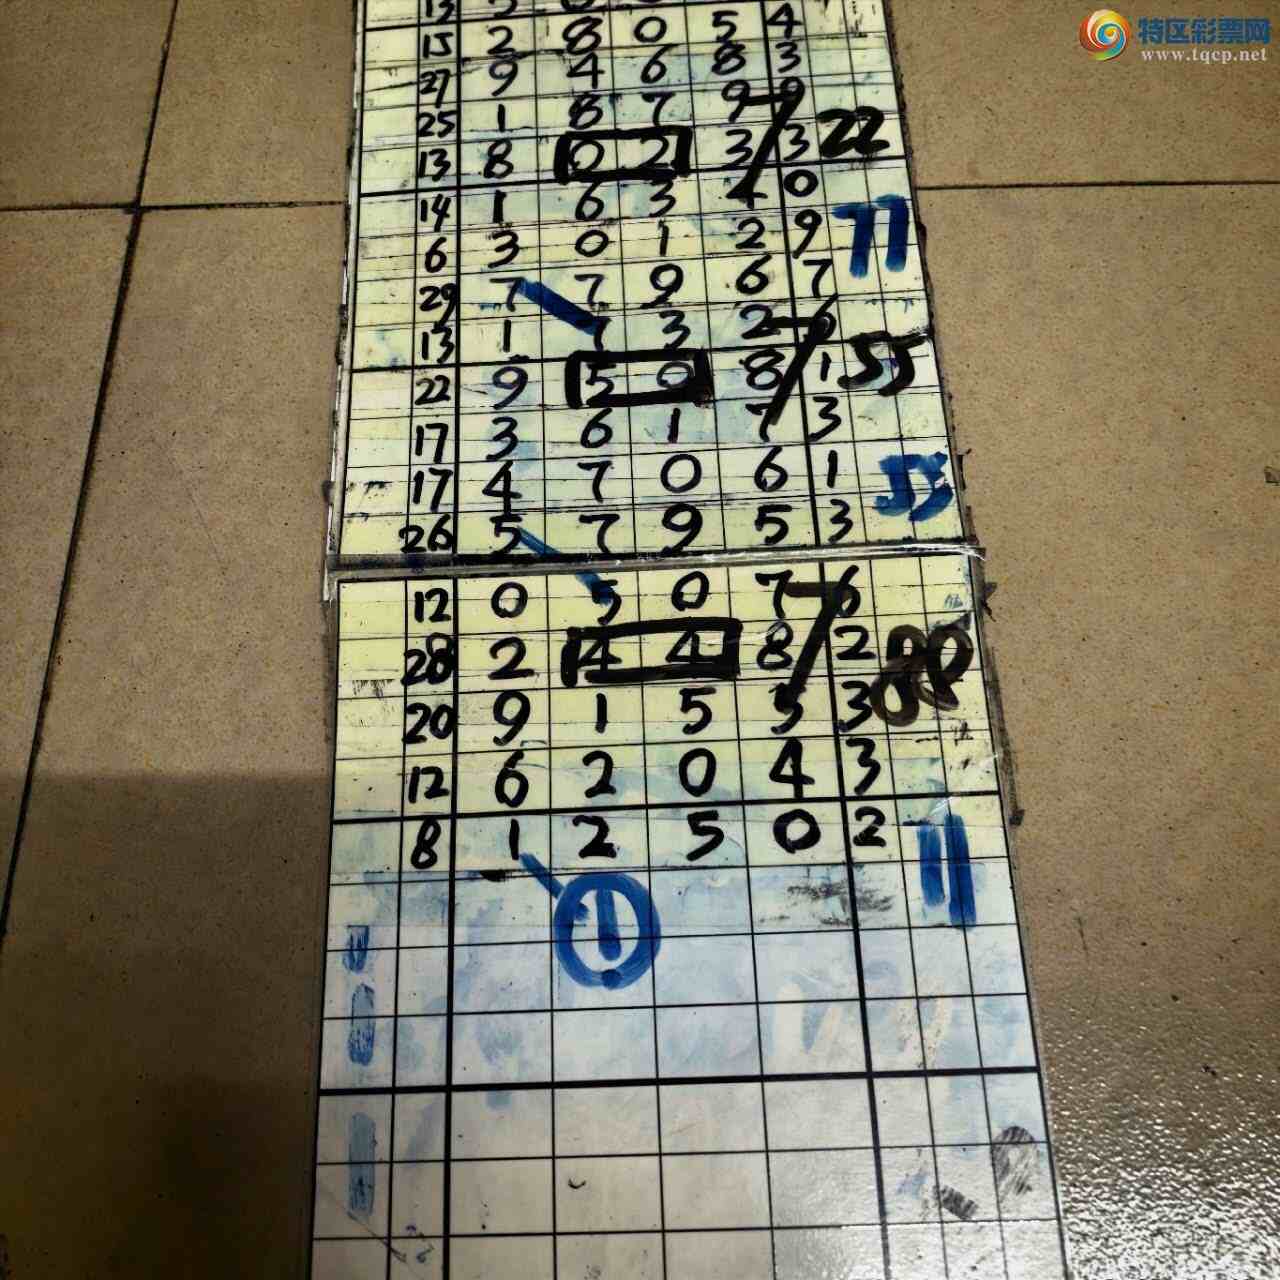 特区彩票网
www.tqcp.net
15 2 8 0 5 4
27 9 4 6 8 3
25 1 8 7 9 9
13 8 0 2 3 3 22
14 1 6 3 4 0
6 3 0 1 2 9 77
29 7 7 9 6 7
13 1 7 3 2 6
22 9 5 0 8 1 55
17 3 6 1 7 3
17 4 7 0 6 1 55
26 5 7 9 5 3
12 0 5 0 7 6
28 2 4 4 8 2 88
20 9 1 5 5 3
12 6 2 0 4 3
8 1 2 5 0 2 11
1